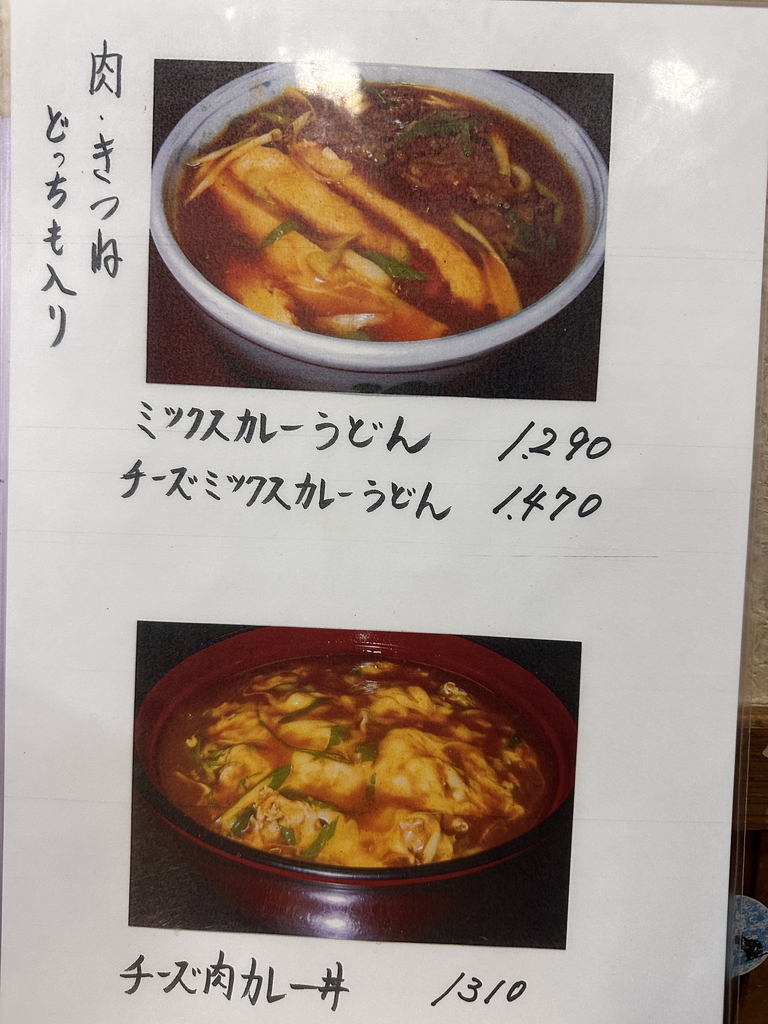 肉・きつね
どっちも入り
ミックスカレーうどん 1.290
チーズミックスカレーうどん 1.470
チーズ肉カレー丼 1310